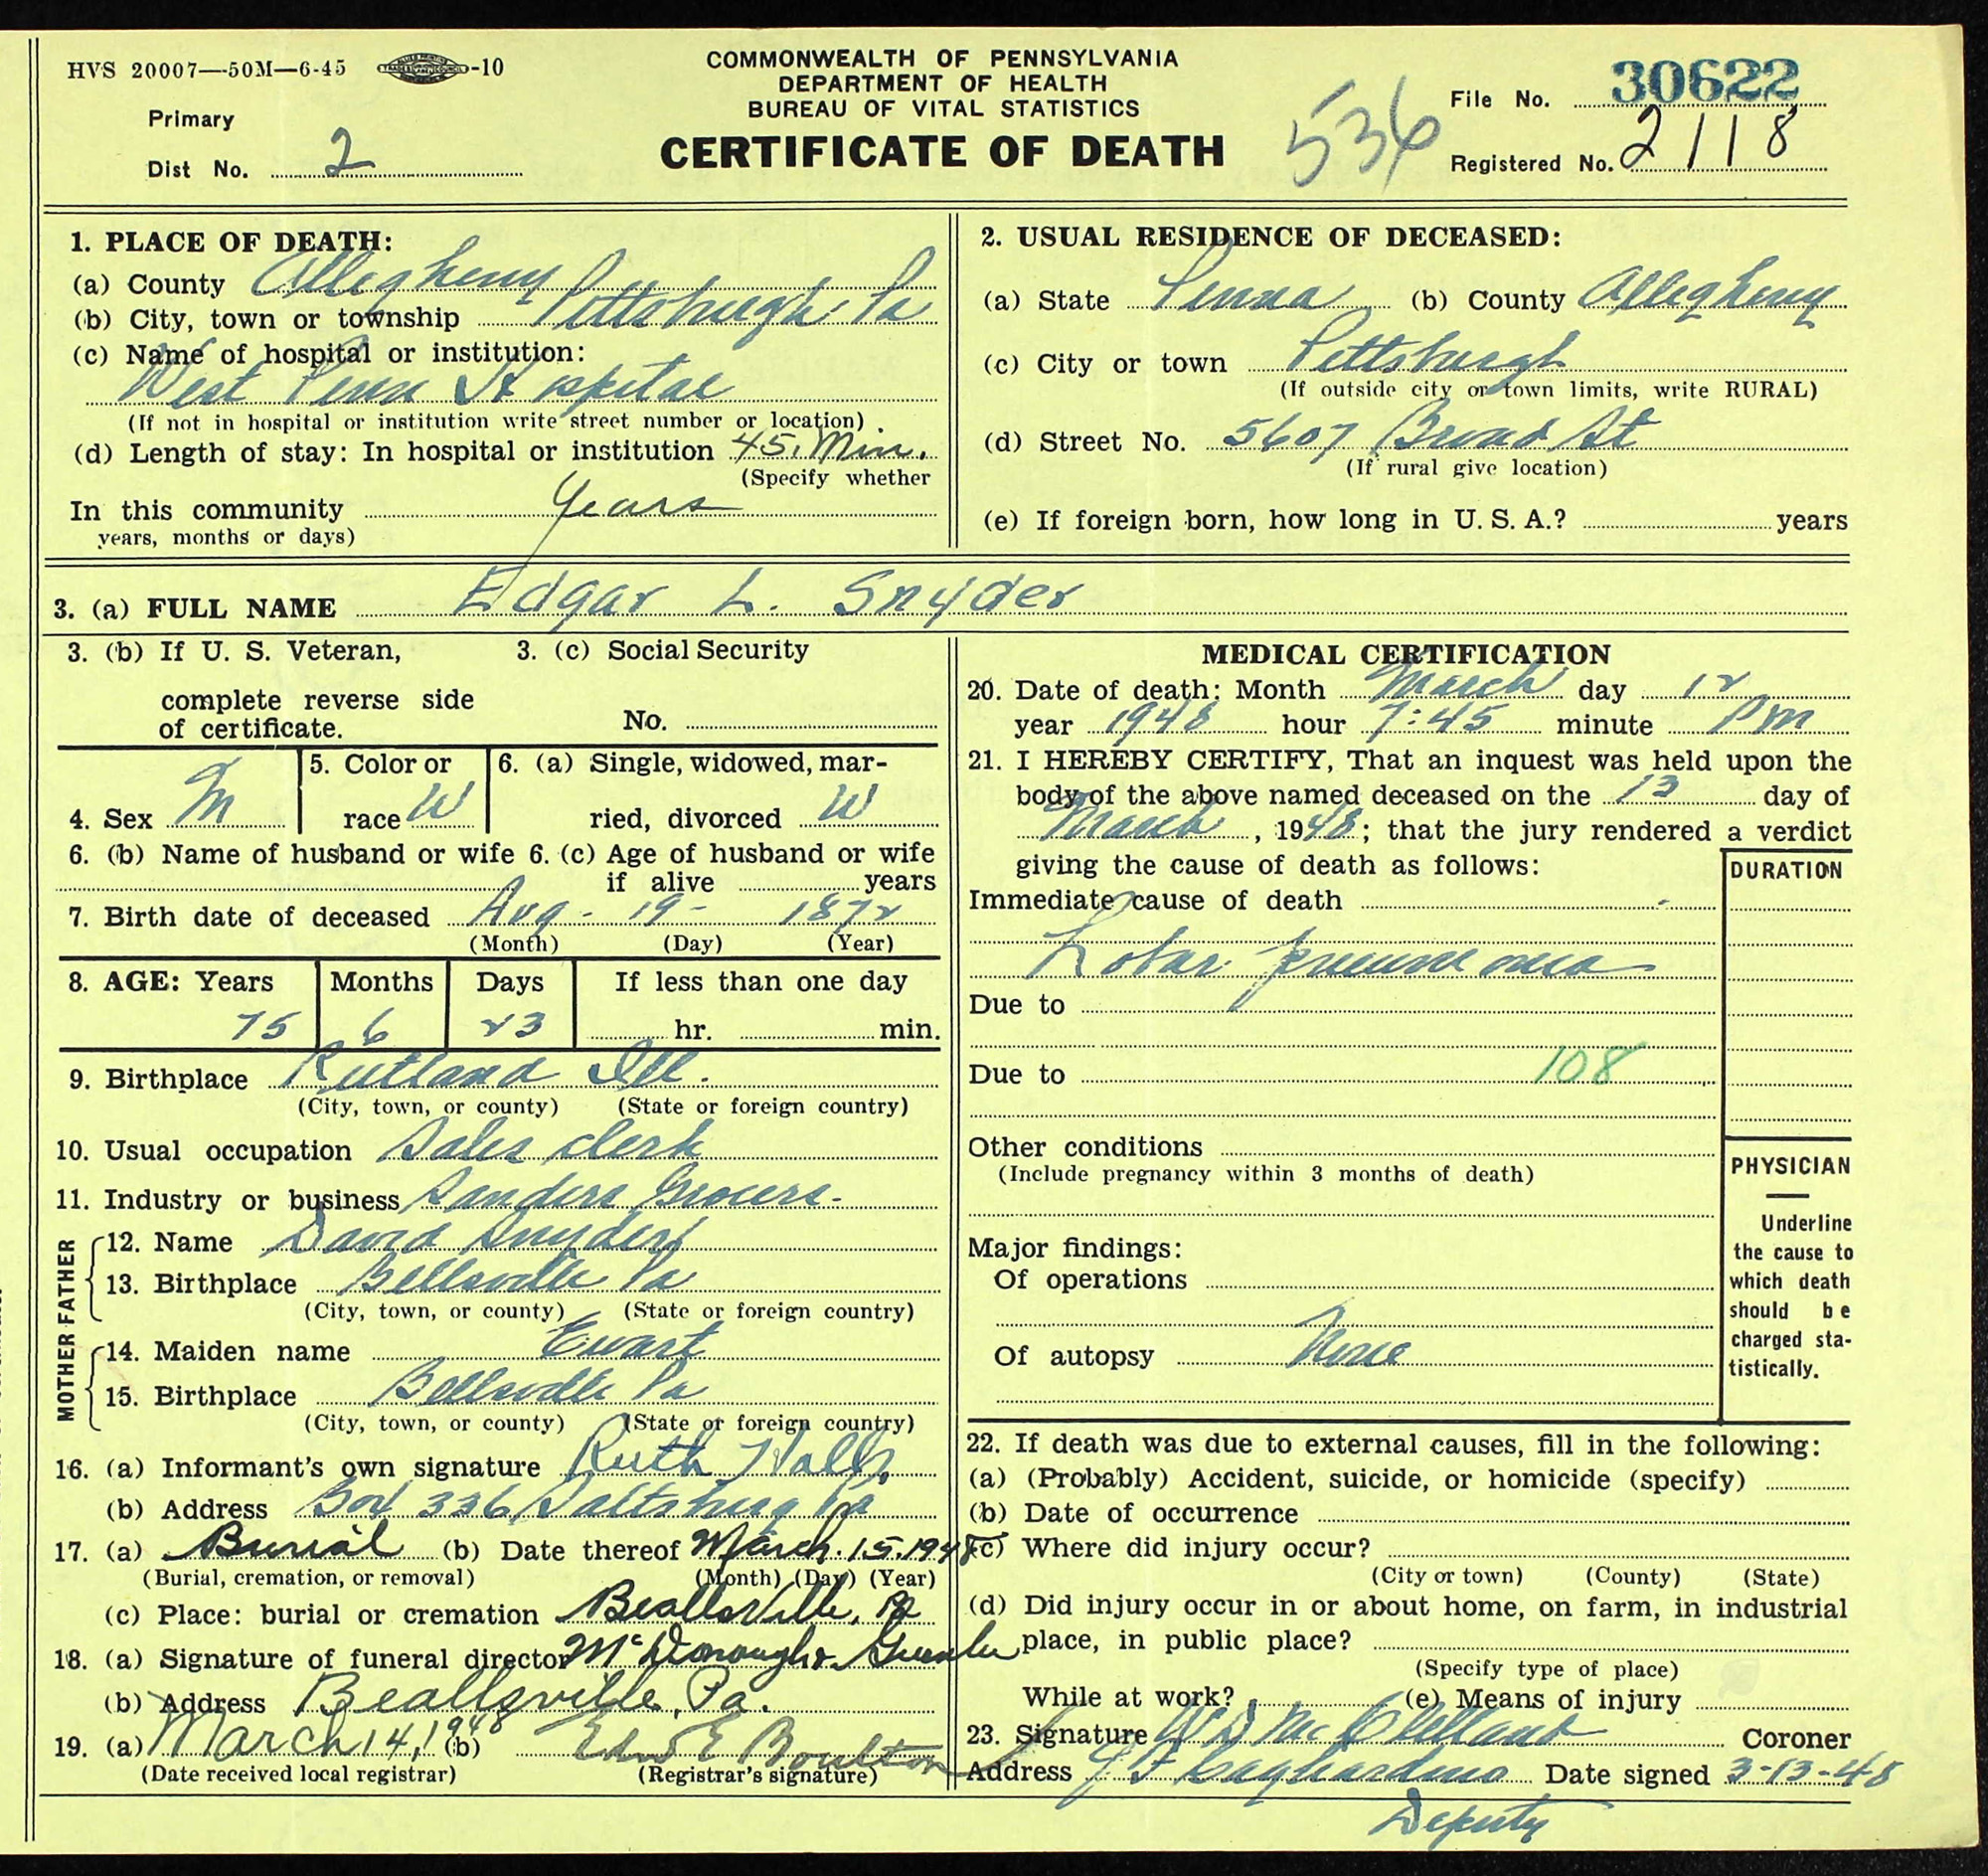 HVS 20007—50M—6-45 -10
COMMONWEALTH OF PENNSYLVANIA
DEPARTMENT OF HEALTH
BUREAU OF VITAL STATISTICS
CERTIFICATE OF DEATH
536
File No. 30622
Registered No. 2118
Primary
Dist No. 2
1. PLACE OF DEATH:
(a) County Allegheny
(b) City, town or township Pittsburgh Pa
(c) Name of hospital or institution:
West Penn Hospital
(If not in hospital or institution write street number or location)
(d) Length of stay: In hospital or institution 45. Min.
(Specify whether
In this community Years
years, months or days)
2. USUAL RESIDENCE OF DECEASED:
(a) State Penna (b) County Allegheny
(c) City or town Pittsburgh
(If outside city or town limits, write RURAL)
(d) Street No. 5607 Broad St
(If rural give location)
(e) If foreign born, how long in U. S. A.? years
3. (a) FULL NAME Edgar L. Snyder
3. (b) If U. S. Veteran,
complete reverse side
of certificate.
3. (c) Social Security
No.
4. Sex M
5. Color or
race W
6. (a) Single, widowed, mar-
ried, divorced W
6. (b) Name of husband or wife 6. (c) Age of husband or wife
if alive years
7. Birth date of deceased Aug - 19 - 1872
(Month) (Day) (Year)
8. AGE: Years Months Days If less than one day
75 6 23 hr. min.
9. Birthplace Rutland Ill.
(City, town, or county) (State or foreign country)
10. Usual occupation Sales clerk
11. Industry or business Sanders Grocers.
FATHER
12. Name David Snyder
13. Birthplace Bellsville Pa
(City, town, or county) (State or foreign country)
MOTHER
14. Maiden name Ewart
15. Birthplace Bellsville Pa
(City, town, or county) (State or foreign country)
16. (a) Informant's own signature Ruth
(b) Address Box 336 Saltsburg Pa
17. (a) Burial (b) Date thereof March. 15. 1948
(Burial, cremation, or removal) (Month) (Day) (Year)
(c) Place: burial or cremation Beallsville, Pa
18. (a) Signature of funeral director McDonough
(b) Address Beallsville, Pa.
19. (a) March 14, 1948 (b) Edw E Boulton
(Date received local registrar) (Registrar's signature)
MEDICAL CERTIFICATION
20. Date of death: Month March day 12
year 1948 hour 7:45 minute PM
21. I HEREBY CERTIFY, That an inquest was held upon the
body of the above named deceased on the 13 day of
March, 1948; that the jury rendered a verdict
giving the cause of death as follows:
DURATION
Immediate cause of death
Lobar pneumonia
Due to
Due to 108
Other conditions
(Include pregnancy within 3 months of death)
Major findings:
Of operations
Of autopsy None
PHYSICIAN
Underline
the cause to
which death
should be
charged sta-
tistically.
22. If death was due to external causes, fill in the following:
(a) (Probably) Accident, suicide, or homicide (specify)
(b) Date of occurrence
(c) Where did injury occur?
(City or town) (County) (State)
(d) Did injury occur in or about home, on farm, in industrial
place, in public place?
(Specify type of place)
While at work? (e) Means of injury
23. Signature W D McClelland Coroner
Address Date signed 3-13-48
Deputy